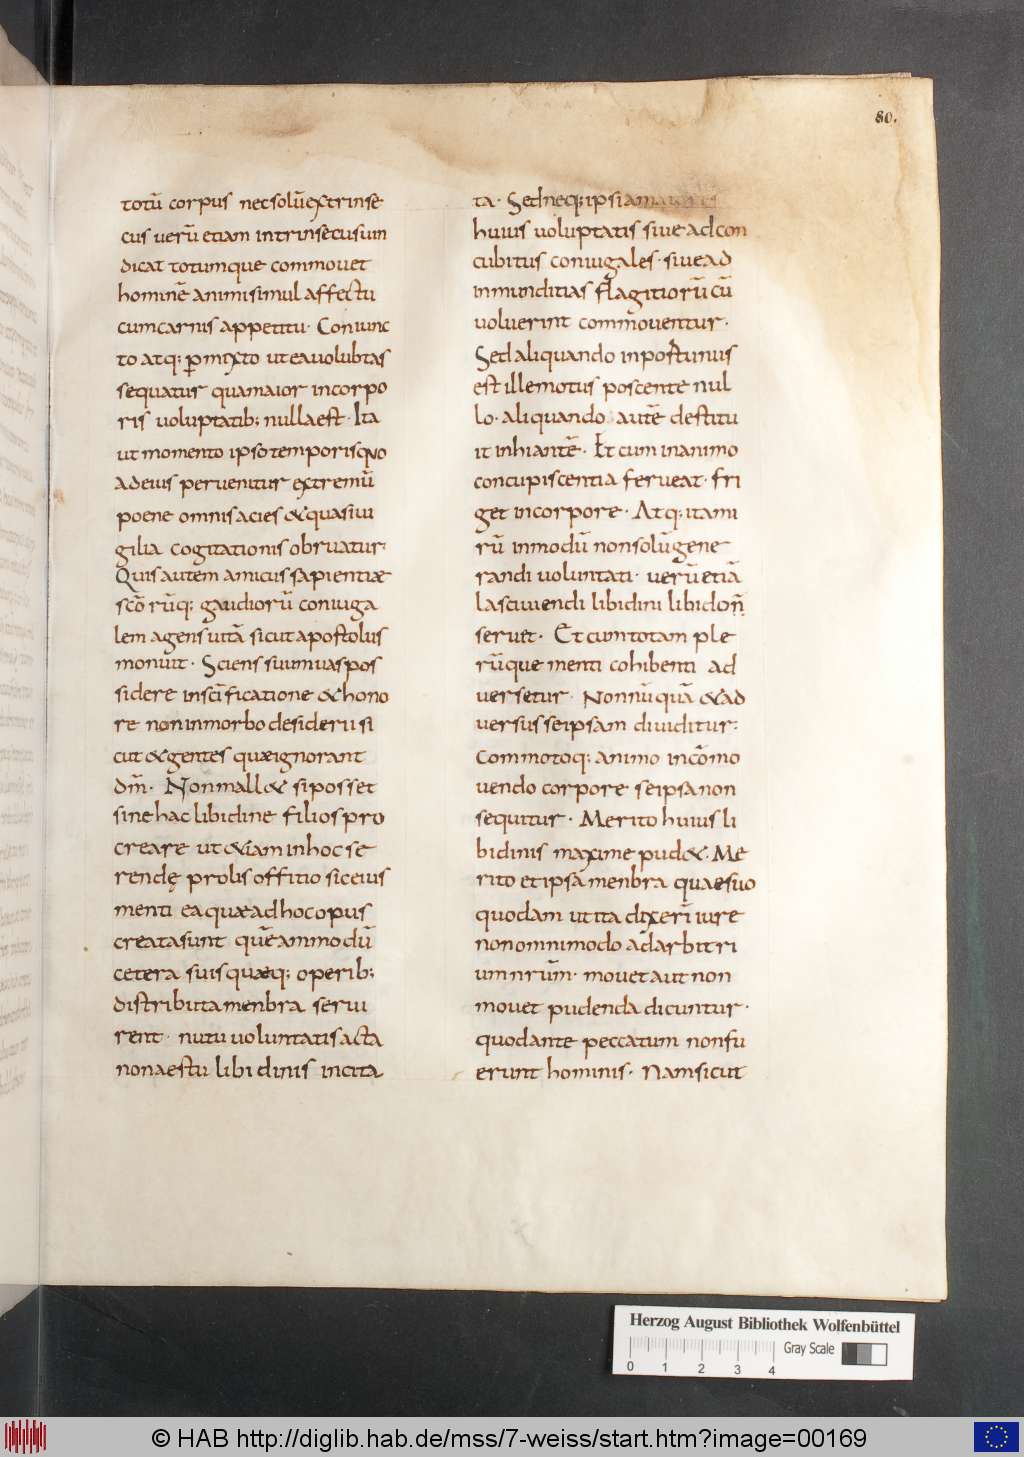 80.
totū corpus nec solū extrinse
cus uerū etiam intrinsecus um
dicat totumque commouet
hominē animi simul affectu
cum carnis appetitu · Coniunc
to atq; ꝑmixto ut ea uolubtas
sequatur qua maior in corpo
ris uoluptatib; nulla est · Ita
ut momento ipso temporis quo
ad eius peruenitur extremū
poene omnis acies & quasi ui
gilia cogitationis obruatur·
Quis autem amicus sapientiæ
scōrūq; gaudiorū coniuga
lem agens uitā sicut apostolus
monuit · Sciens suum uas pos
sidere in scīficatione & hono
re non in morbo desiderii si
cut & gentes quæ ignorant
dm̄ · Non mall& si posset
sine hac libidine filios pro
creare ut &iam in hoc se
rendę prolis offitio sic eius
menti ea quæ ad hoc opus
creata sunt quēammodū
cetera suis quæq; operib;
distributa menbra serui
rent · nutu uoluntatis acta
non aestu libidinis incita
ta · Sed neq; ipsi
huius uoluptatis siue ad con
cubitus coniugales · siue ad
inmunditias flagitiorū cū
uoluerint commouentur ·
Sed aliquando inportunus
est ille motus poscente nul
lo · aliquando autē destitu
it inhiantē · Et cum in animo
concupiscentia ferueat · fri
get in corpore · Atq; ita mi
rū inmodū non solū gene
randi uoluntati · uerū etiā
lasciuiendi libidini libido n̄
seruit · Et cum totam ple
rūque menti cohibenti ad
uersetur · Nonnūquā & ad
uersus seipsam diuiditur:
Commotoq; animo in cōmo
uendo corpore seipsa non
sequitur · Merito huius li
bidinis maxime pud& · Me
rito et ipsā menbra quae suo
quodam ut ita dixerī iure
non omnimodo ad arbitri
um nr̄um · mouet aut non
mouet pudenda dicuntur ·
quod ante peccatum non fu
erunt hominis · Nam sicut
Herzog August Bibliothek Wolfenbüttel
Gray Scale
0 1 2 3 4
© HAB http://diglib.hab.de/mss/7-weiss/start.htm?image=00169